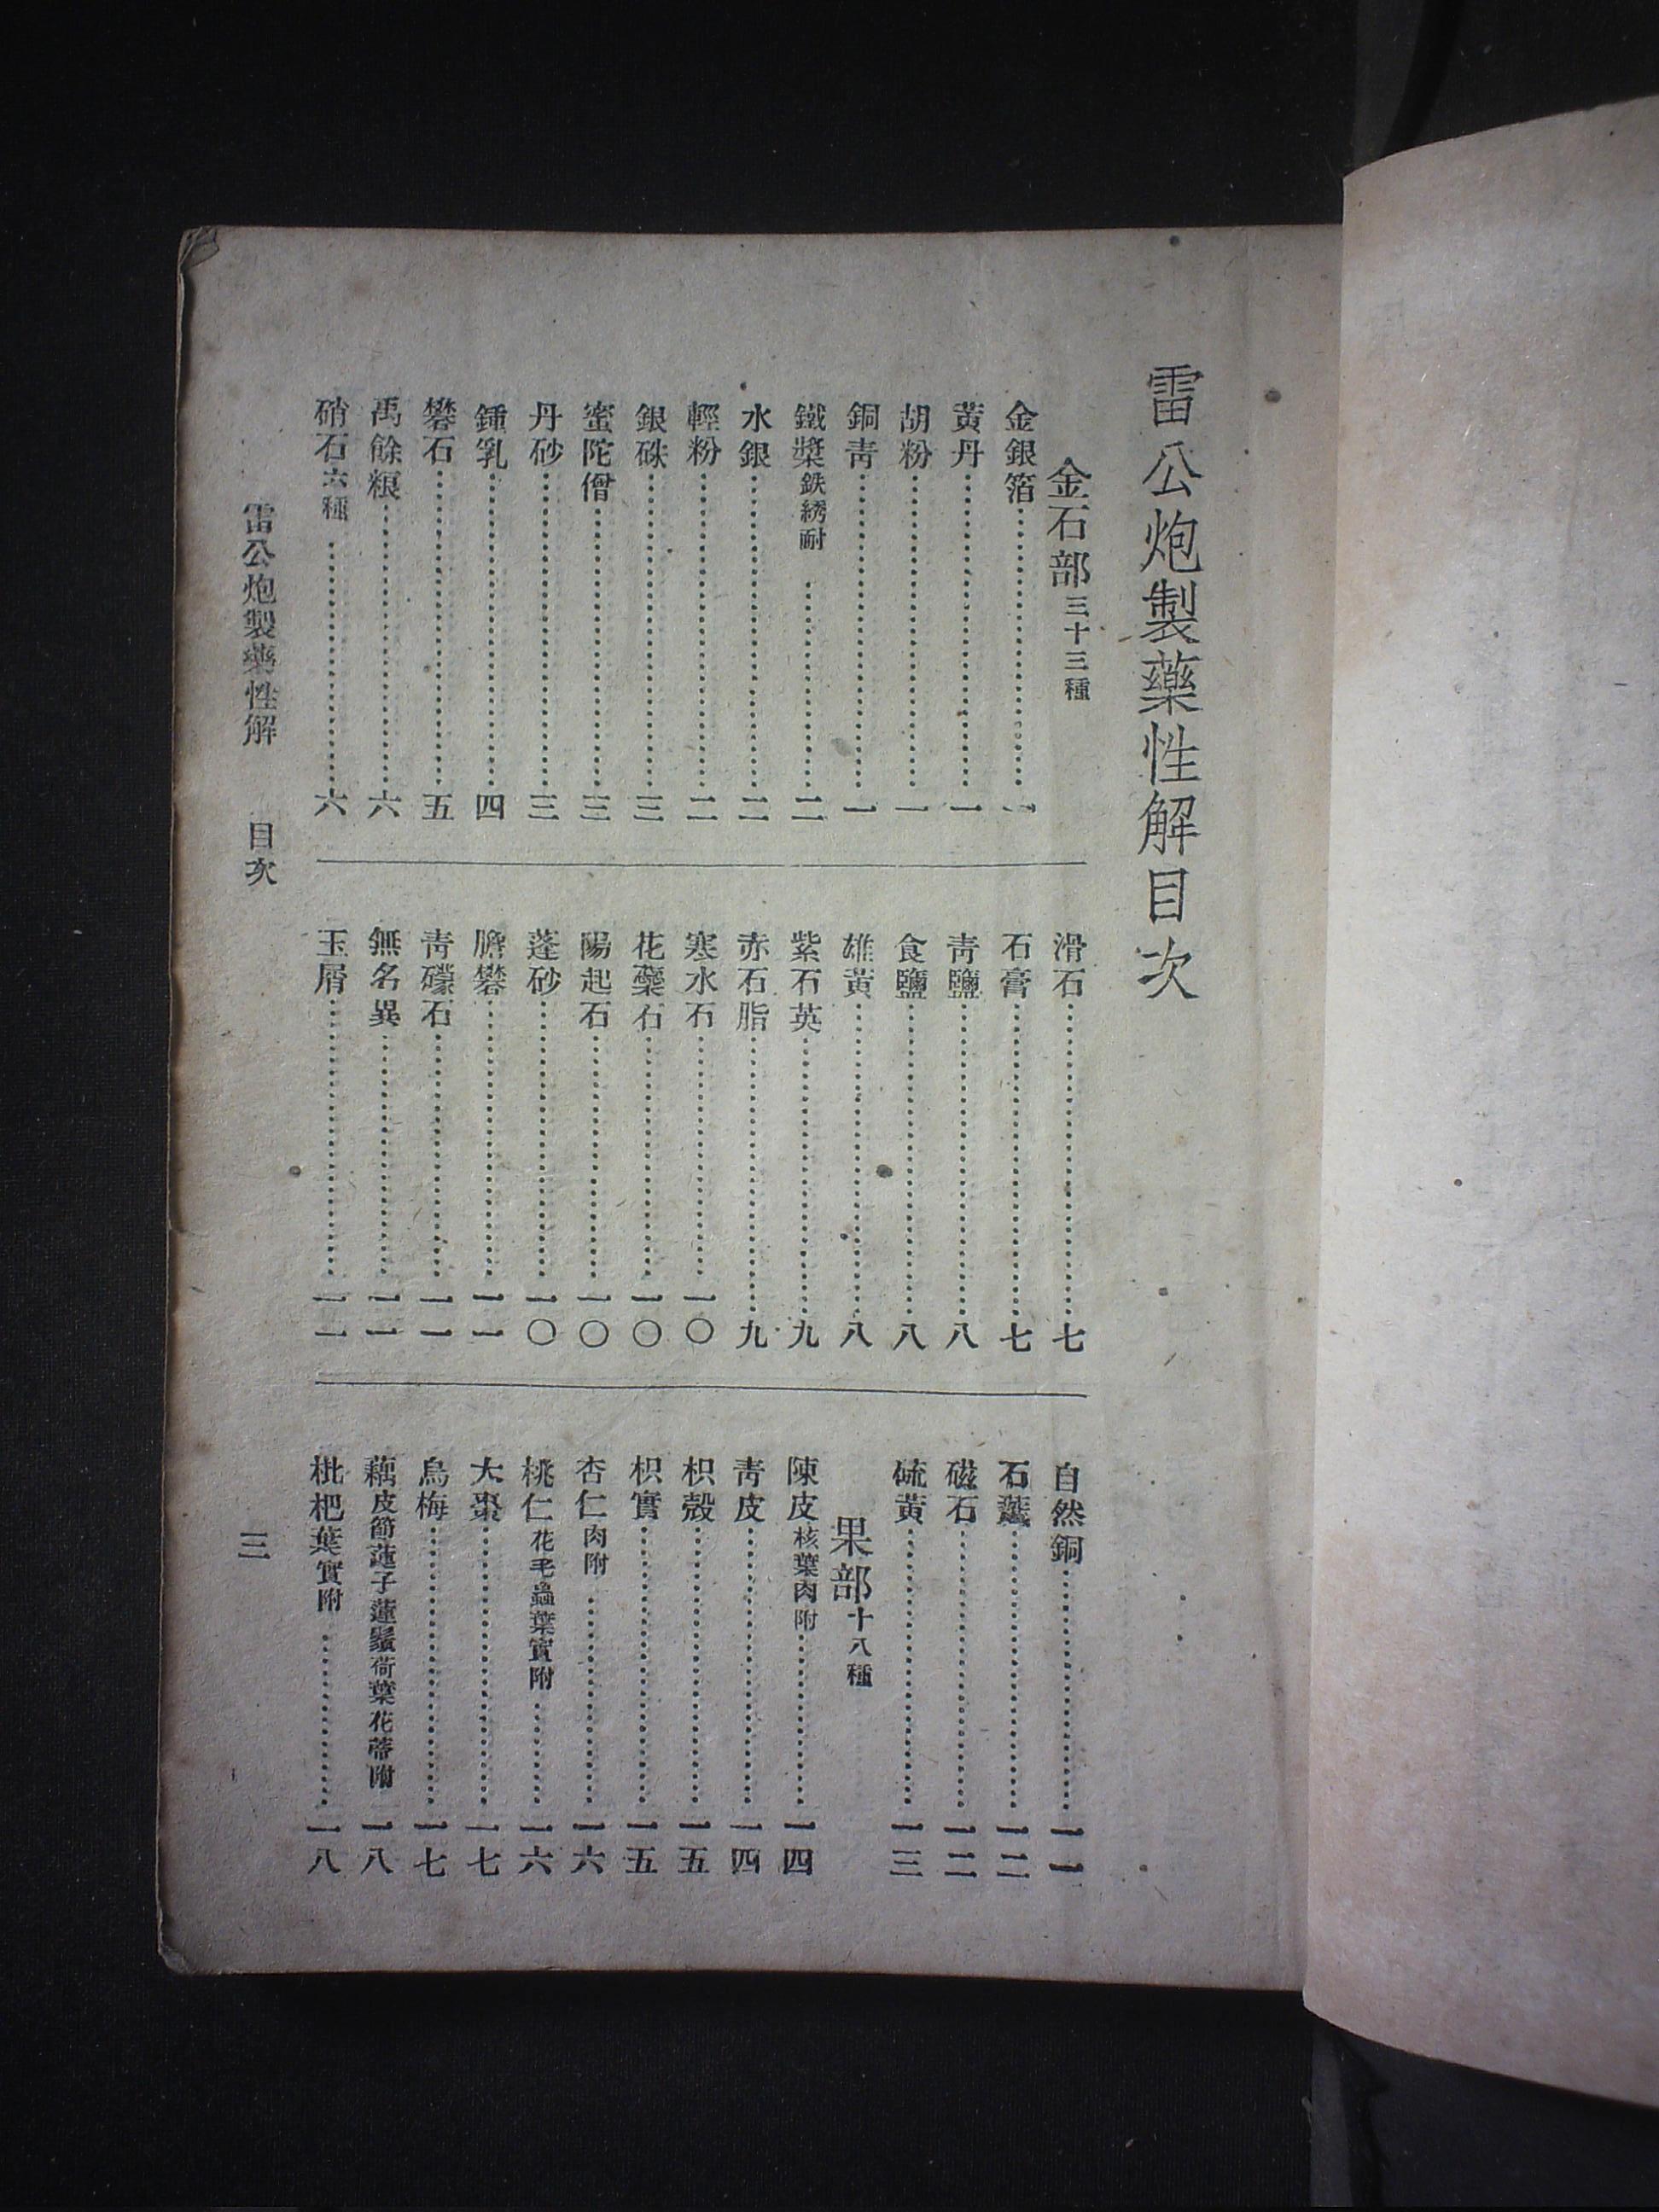 雷公炮製藥性解目次
金石部三十三種
金銀箔……一
黃丹……一
胡粉……一
銅靑……一
鐵漿鉄綉耐……二
水銀……二
輕粉……二
銀硃……三
蜜陀僧……三
丹砂……三
鍾乳……四
礬石……五
禹餘粮……六
硝石六種……六
滑石……七
石膏……七
靑鹽……八
食鹽……八
雄黃……八
紫石英……九
赤石脂……九
寒水石……一〇
花蘂石……一〇
陽起石……一〇
蓬砂……一〇
膽礬……一一
靑礞石……一一
無名異……一一
玉屑……一一
自然銅……一一
石……一二
磁石……一二
硫黃……一三
果部十八種
陳皮核葉肉附……一四
靑皮……一四
枳殼……一五
枳實……一五
杏仁肉附……一六
桃仁花毛蟲葉實附……一六
大棗……一七
烏梅……一七
藕皮節蓮子蓮鬚荷葉花蒂附 一八
枇杷葉實附……一八
雷公炮製藥性解 目次
三